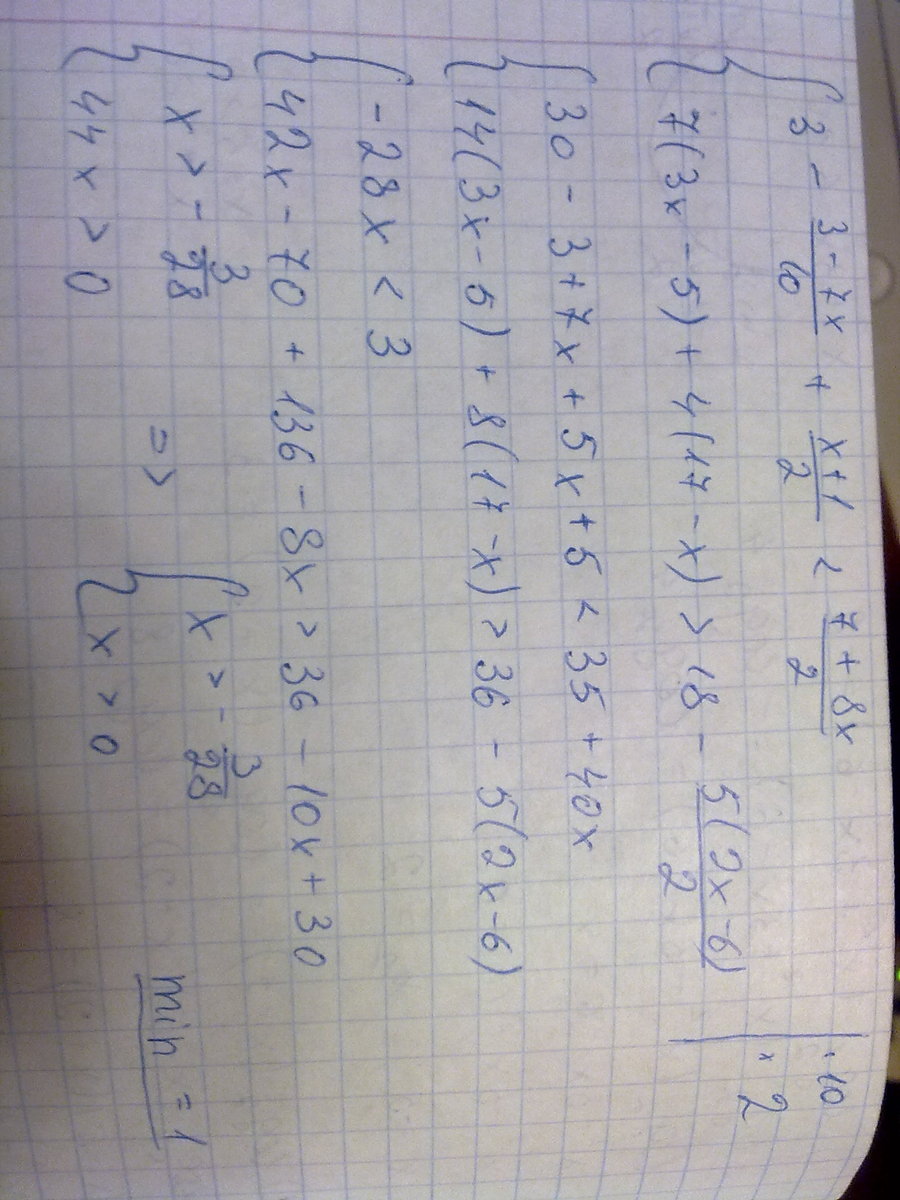 3 - (3-7x)/10 + (x+1)/2 < (7+8x)/2 | · 10
7(3x-5) + 4(17-x) > 18 - 5(2x-6)/2 | × 2
30 - 3 + 7x + 5x + 5 < 35 + 40x
14(3x-5) + 8(17-x) > 36 - 5(2x-6)
-28x < 3
42x - 70 + 136 - 8x > 36 - 10x + 30
x > -3/28 => x > -3/28
44x > 0 x > 0
min = 1